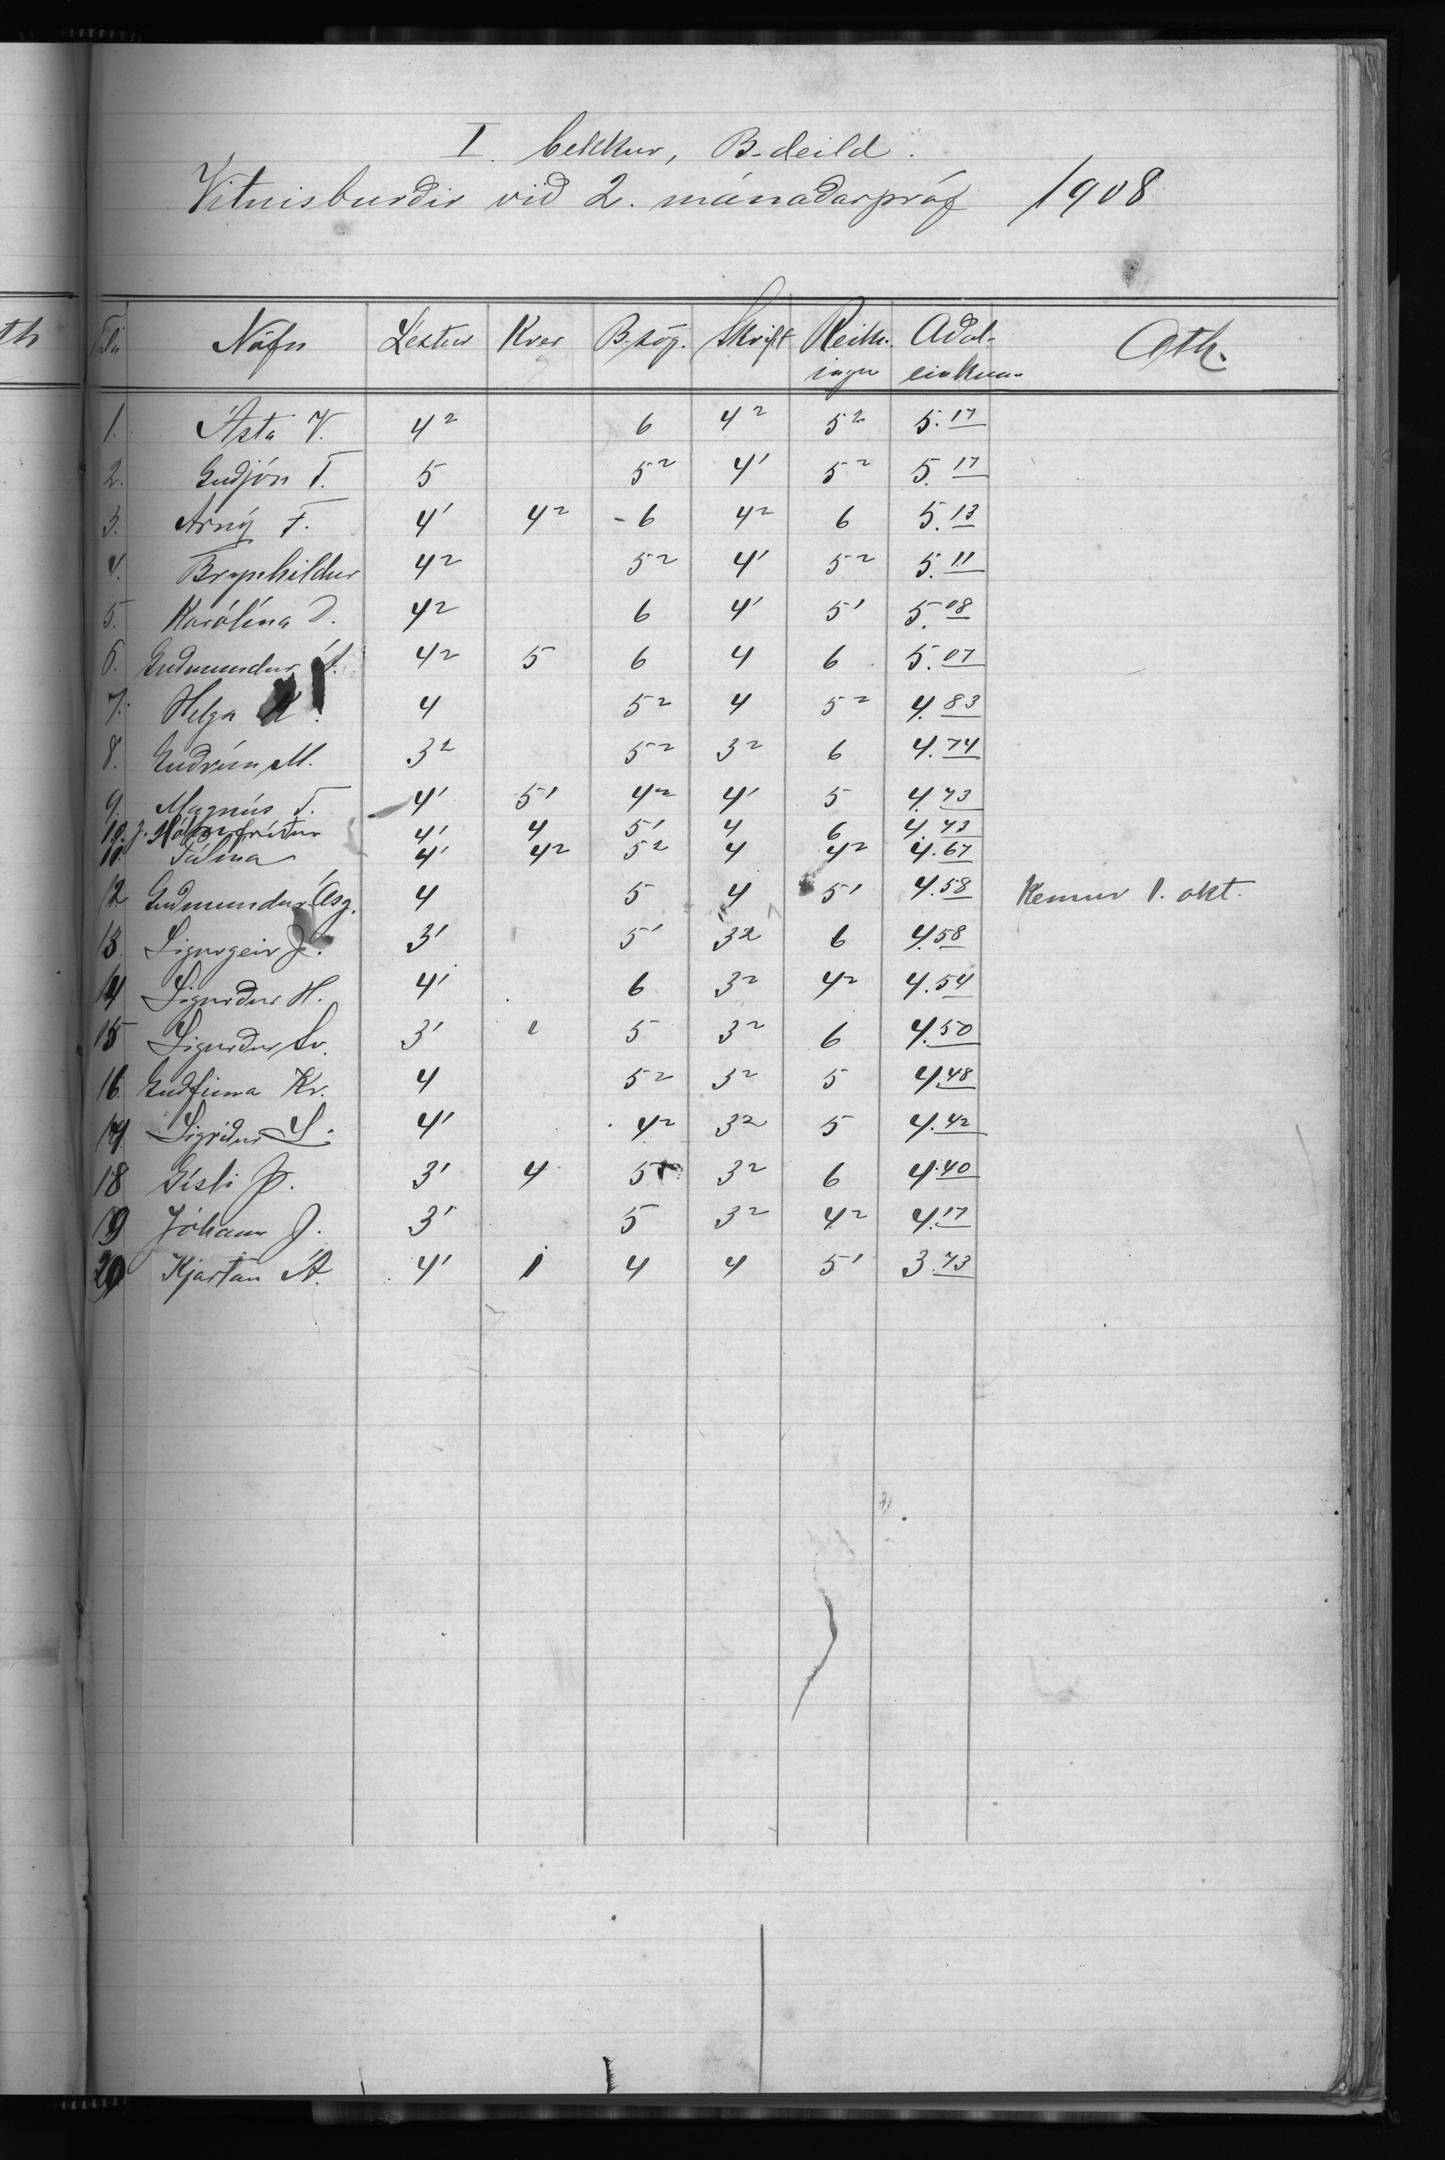 I. bekkur, B-deild.
Vitnisburðir við 2. mánaðarpróf 1908
Tala Nöfn Lestur Kver B.sög. Skrift Reikn- Aðal- Ath.
ingur einkunn
1. Ásta V. 4² 6 4² 5² 5.17
2. Guðjón T. 5 5² 4' 5² 5.17
3. Árný F. 4' 4² 6 4² 6 5.13
4. Brynhildur 4² 5² 4' 5² 5.11
5. Karólína 4² 6 4' 5' 5.08
6. Guðmundur 4² 5 6 4 6 5.07
7. Helga K. 4 5² 4 5² 4.83
8. Guðrún M. 3² 5² 3² 6 4.74
9. Magnús T. 4' 5' 4² 4' 5 4.73
10. Hólmfríður 4' 4 5' 4 6 4.73
11. Pálína 4' 4² 5² 4 4² 4.67
12 Guðmundur Ásg. 4 5 4 5' 4.58 Kemur 1. okt.
13. Sigurgeir J. 3' 5' 3² 6 4.58
14 Sigurður H. 4' 6 3² 4² 4.54
15 Sigurður Sv. 3' 5 3² 6 4.50
16. Guðfinna Kr. 4 5² 3² 5 4.48
17 Sigríður S. 4' 4² 3² 5 4.42
18 Gísli Þ. 3' 4 5 3² 6 4.40
19 Jóhann J. 3' 5 3² 4² 4.17
20 Kjartan Á. 4' 1 4 4 5' 3.73